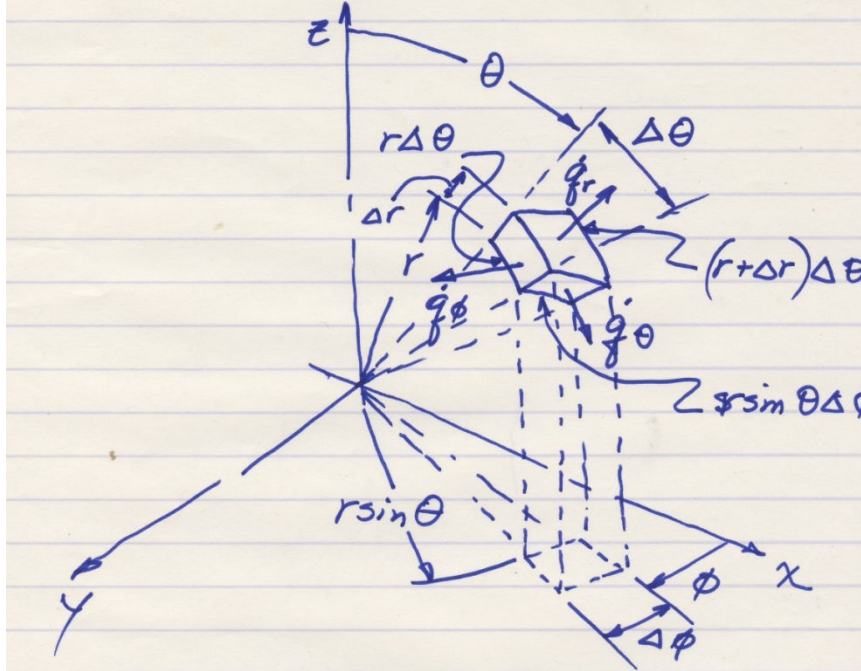 z
θ
rΔθ
Δθ
q̇r
Δr
r
(r+Δr)Δθ
q̇ϕ
q̇θ
rsin θΔϕ
rsinθ
x
ϕ
y
Δϕ